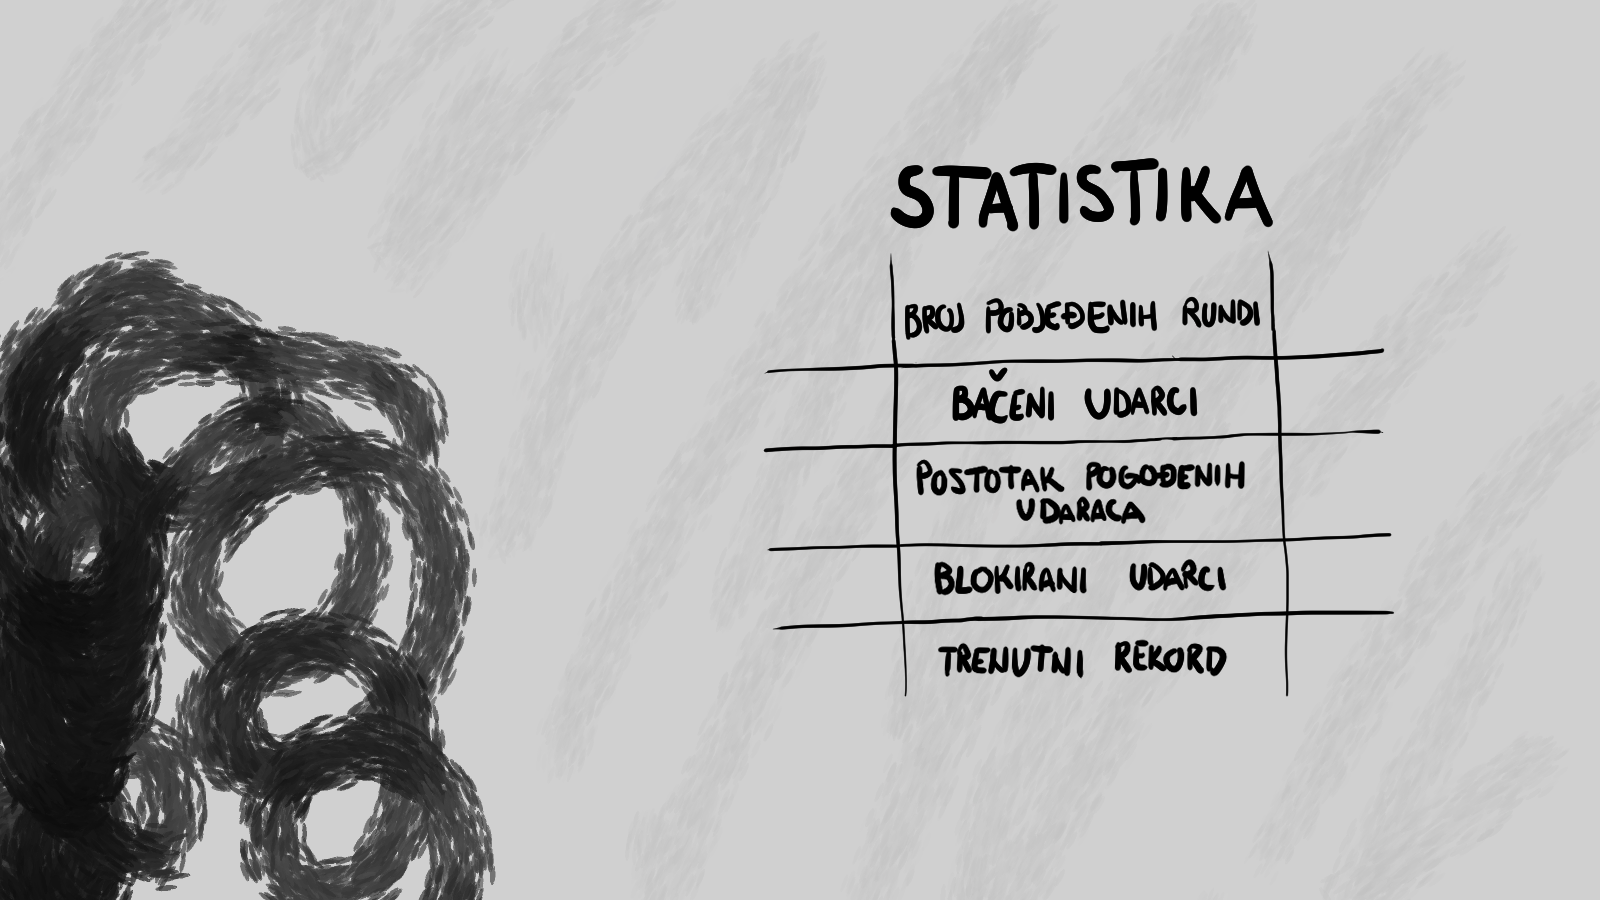 STATISTIKA
BROJ POBJEĐENIH RUNDI
BAČENI UDARCI
POSTOTAK POGOĐENIH
UDARACA
BLOKIRANI UDARCI
TRENUTNI REKORD